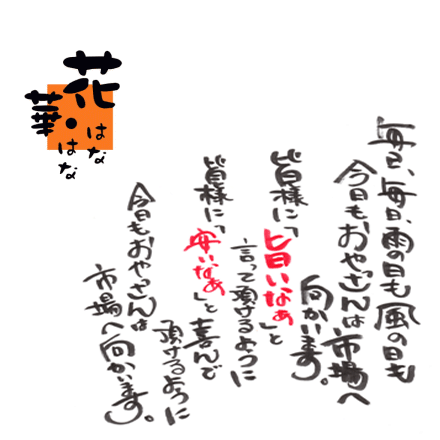 花・華
はな
はな
毎日、毎日、雨の日も風の日も
今日もおやっさんは市場へ
向かいます。
皆様に「旨いなぁ」と
言って頂けるように
皆様に「安いなぁ」と喜んで
頂けるように
今日もおやっさんは
市場へ向かいます。